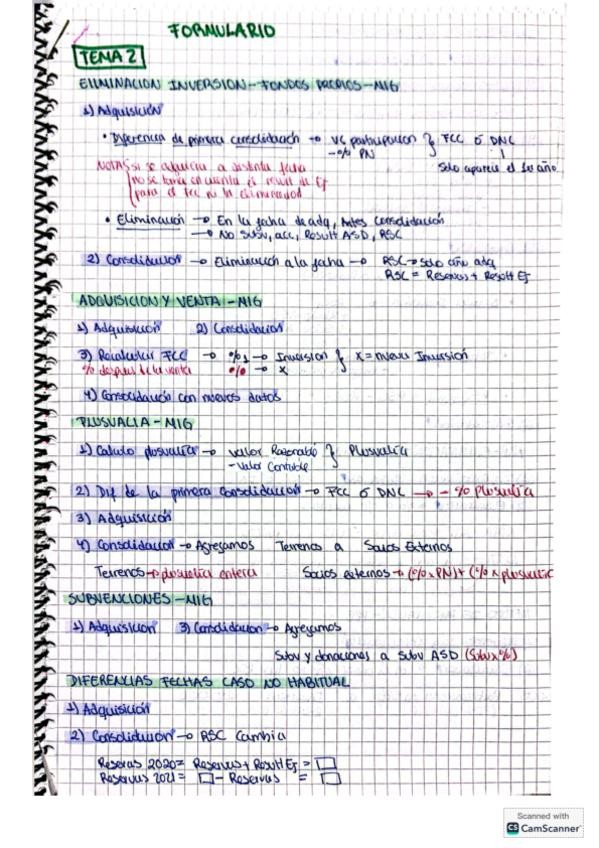 FORMULARIO
TEMA 2
ELIMINACION INVERSION - FONDOS PROPIOS - MIG
1) Adquisición
• Diferencia de primera consolidación → VC participación } FCC ó DNC
- % PN
Solo aparece el 1er año
NOTAS si se adquiria a distinta fecha
no se toma en cuenta el result de Ej
para el FCC ni la eliminacion
• Eliminación → En la fecha de adq, Antes consolidación
→ NO Subv, acc, Result ASD, RSC
2) Consolidacion → Eliminacion a la fecha → RSC → solo año adq
RSC = Reservas + Result Ej
ADQUISICION Y VENTA - MIG
1) Adquisicion 2) Consolidacion
3) Recalcular FCC → %1 → Inversion } X = nueva Inversion
% despues de la venta % → X
4) Consolidación con nuevos datos
PLUSVALIA - MIG
1) Calculo plusvalia → Valor Razonable } Plusvalia
- Valor Contable
2) Dif de la primera consolidacion → FCC ó DNC → - % Plusvalia
3) Adquisición
4) Consolidacion → Agregamos Terrenos a Socios Externos
Terrenos → plusvalia entera Socios externos → (% x PN) + (% x plusvalia
SUBVENCIONES - MIG
1) Adquisicion 3) Consolidacion → Agregamos
Subv y donaciones a Subv ASD (Subv x %)
DIFERENCIAS FECHAS CASO NO HABITUAL
1) Adquisicion
2) Consolidacion → RSC Cambia
Reservas 2020 = Reservas + Result Ej = □
Reservas 2021 = □ - Reservas = □
Scanned with
CS CamScanner